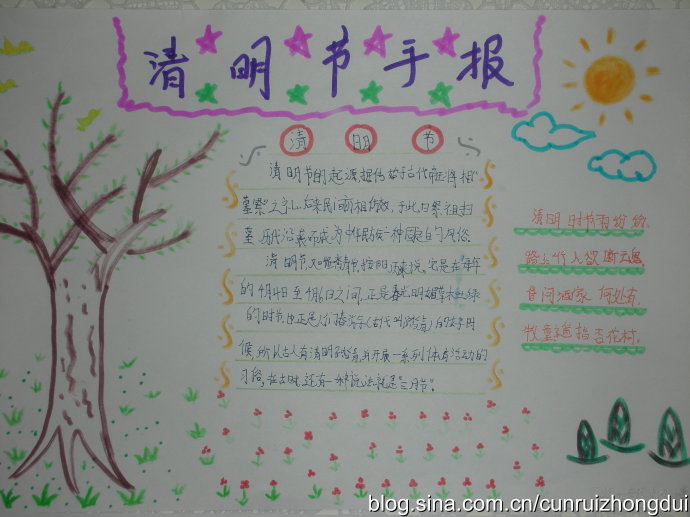 清明节手报
清明节
清明节的起源,据传始于古代帝王将相
墓祭之礼,后来民间亦相仿效,于此日祭祖扫
墓,历代沿袭而成为中华民族一种固定的风俗
清明节,又叫踏青节,按阳历来说,它是在每年
的4月4日至4月6日之间,正是春光明媚草木吐绿
的时节,也正是人们春游(古代叫踏青)的好时
候,所以古人有清明踏青,并开展一系列体育活动的
习俗,在古时,还有一种说法就是"三月节"。
清明时节雨纷纷,
路上行人欲断魂
借问酒家何处有,
牧童遥指杏花村。
blog.sina.com.cn/cunruizhongdui